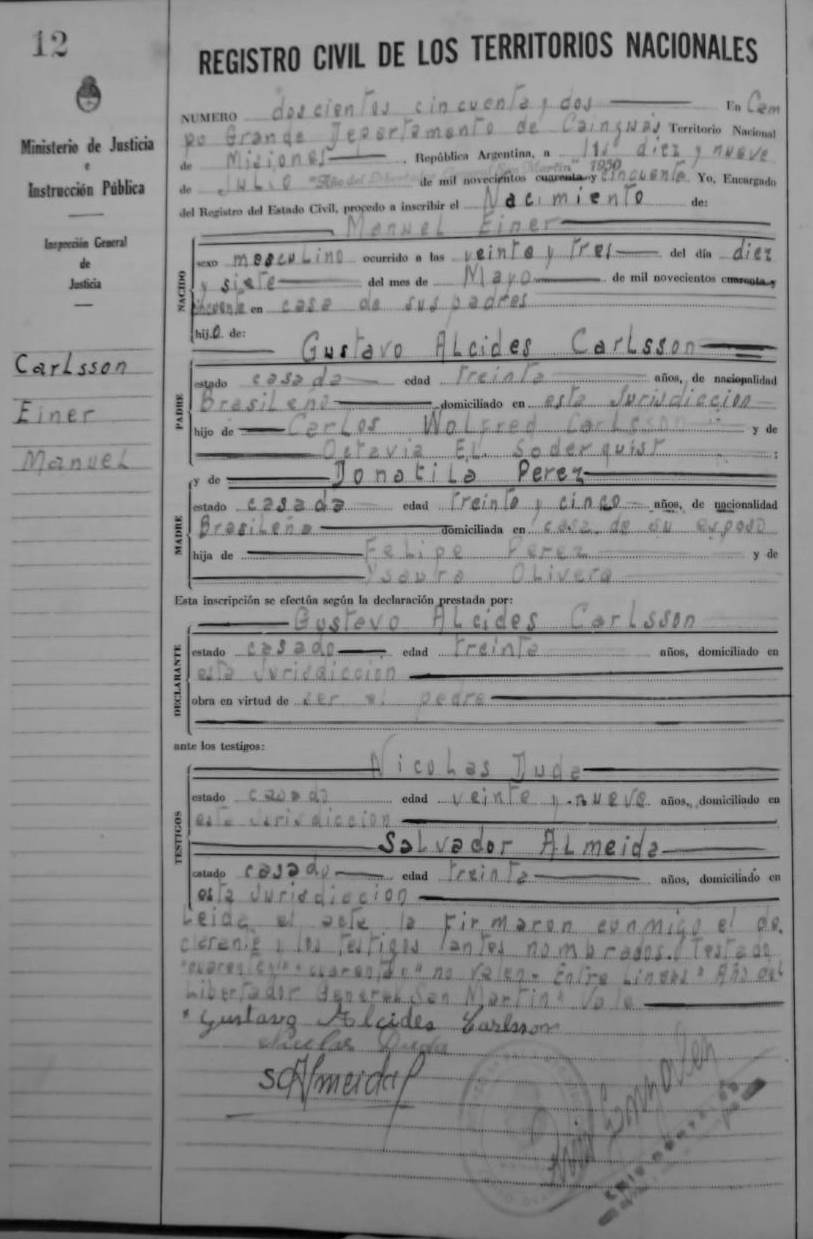 12
REGISTRO CIVIL DE LOS TERRITORIOS NACIONALES
Ministerio de Justicia
e
Instrucción Pública
Inspección General
de
Justicia
Carlsson
Einer
Manuel
NUMERO doscientos cincuenta y dos En Cam
po Grande Departamento de Cainguás Territorio Nacional
de Misiones, República Argentina, a diez y nueve
de Julio "Año del Libertador General San Martin" 1950 de mil novecientos cuarenta y cincuenta Yo, Encargado
del Registro del Estado Civil, procedo a inscribir el Nacimiento de:
Manuel Einer
NACIDO
sexo masculino ocurrido a las veinte y tres del día diez
y siete del mes de Mayo de mil novecientos cuarenta y
cincuenta en casa de sus padres
hijo de:
Gustavo Alcides Carlsson
PADRE
estado casado edad treinta años, de nacionalidad
Brasileño domiciliado en esta Jurisdiccion
hijo de Carlos Wolfred Carlsson y de
Octavia El. Soderquist ;
y de Donatila Perez
MADRE
estado casada edad treinta y cinco años, de nacionalidad
Brasileña domiciliada en casa de su esposo
hija de Felipe Perez y de
Ysaura Olivera
Esta inscripción se efectúa según la declaración prestada por:
Gustavo Alcides Carlsson
DECLARANTE
estado casado edad treinta años, domiciliado en
esta Jurisdiccion
obra en virtud de ser el padre
ante los testigos:
Nicolas Duda
TESTIGOS
estado casado edad veinte y nueve años, domiciliado en
esta Jurisdiccion
Salvador Almeida
estado casado edad treinta años, domiciliado en
esta Jurisdiccion
Leida el acta la firmaron conmigo el de
clarante y los testigos antes nombrados. Testado
"cuarenta y" "cuarenta y" no valen. Entre lineas "Año del
Libertador General San Martin" Vale
Gustavo Alcides Carlsson
Nicolas Duda
S Almeida
Gonzalez